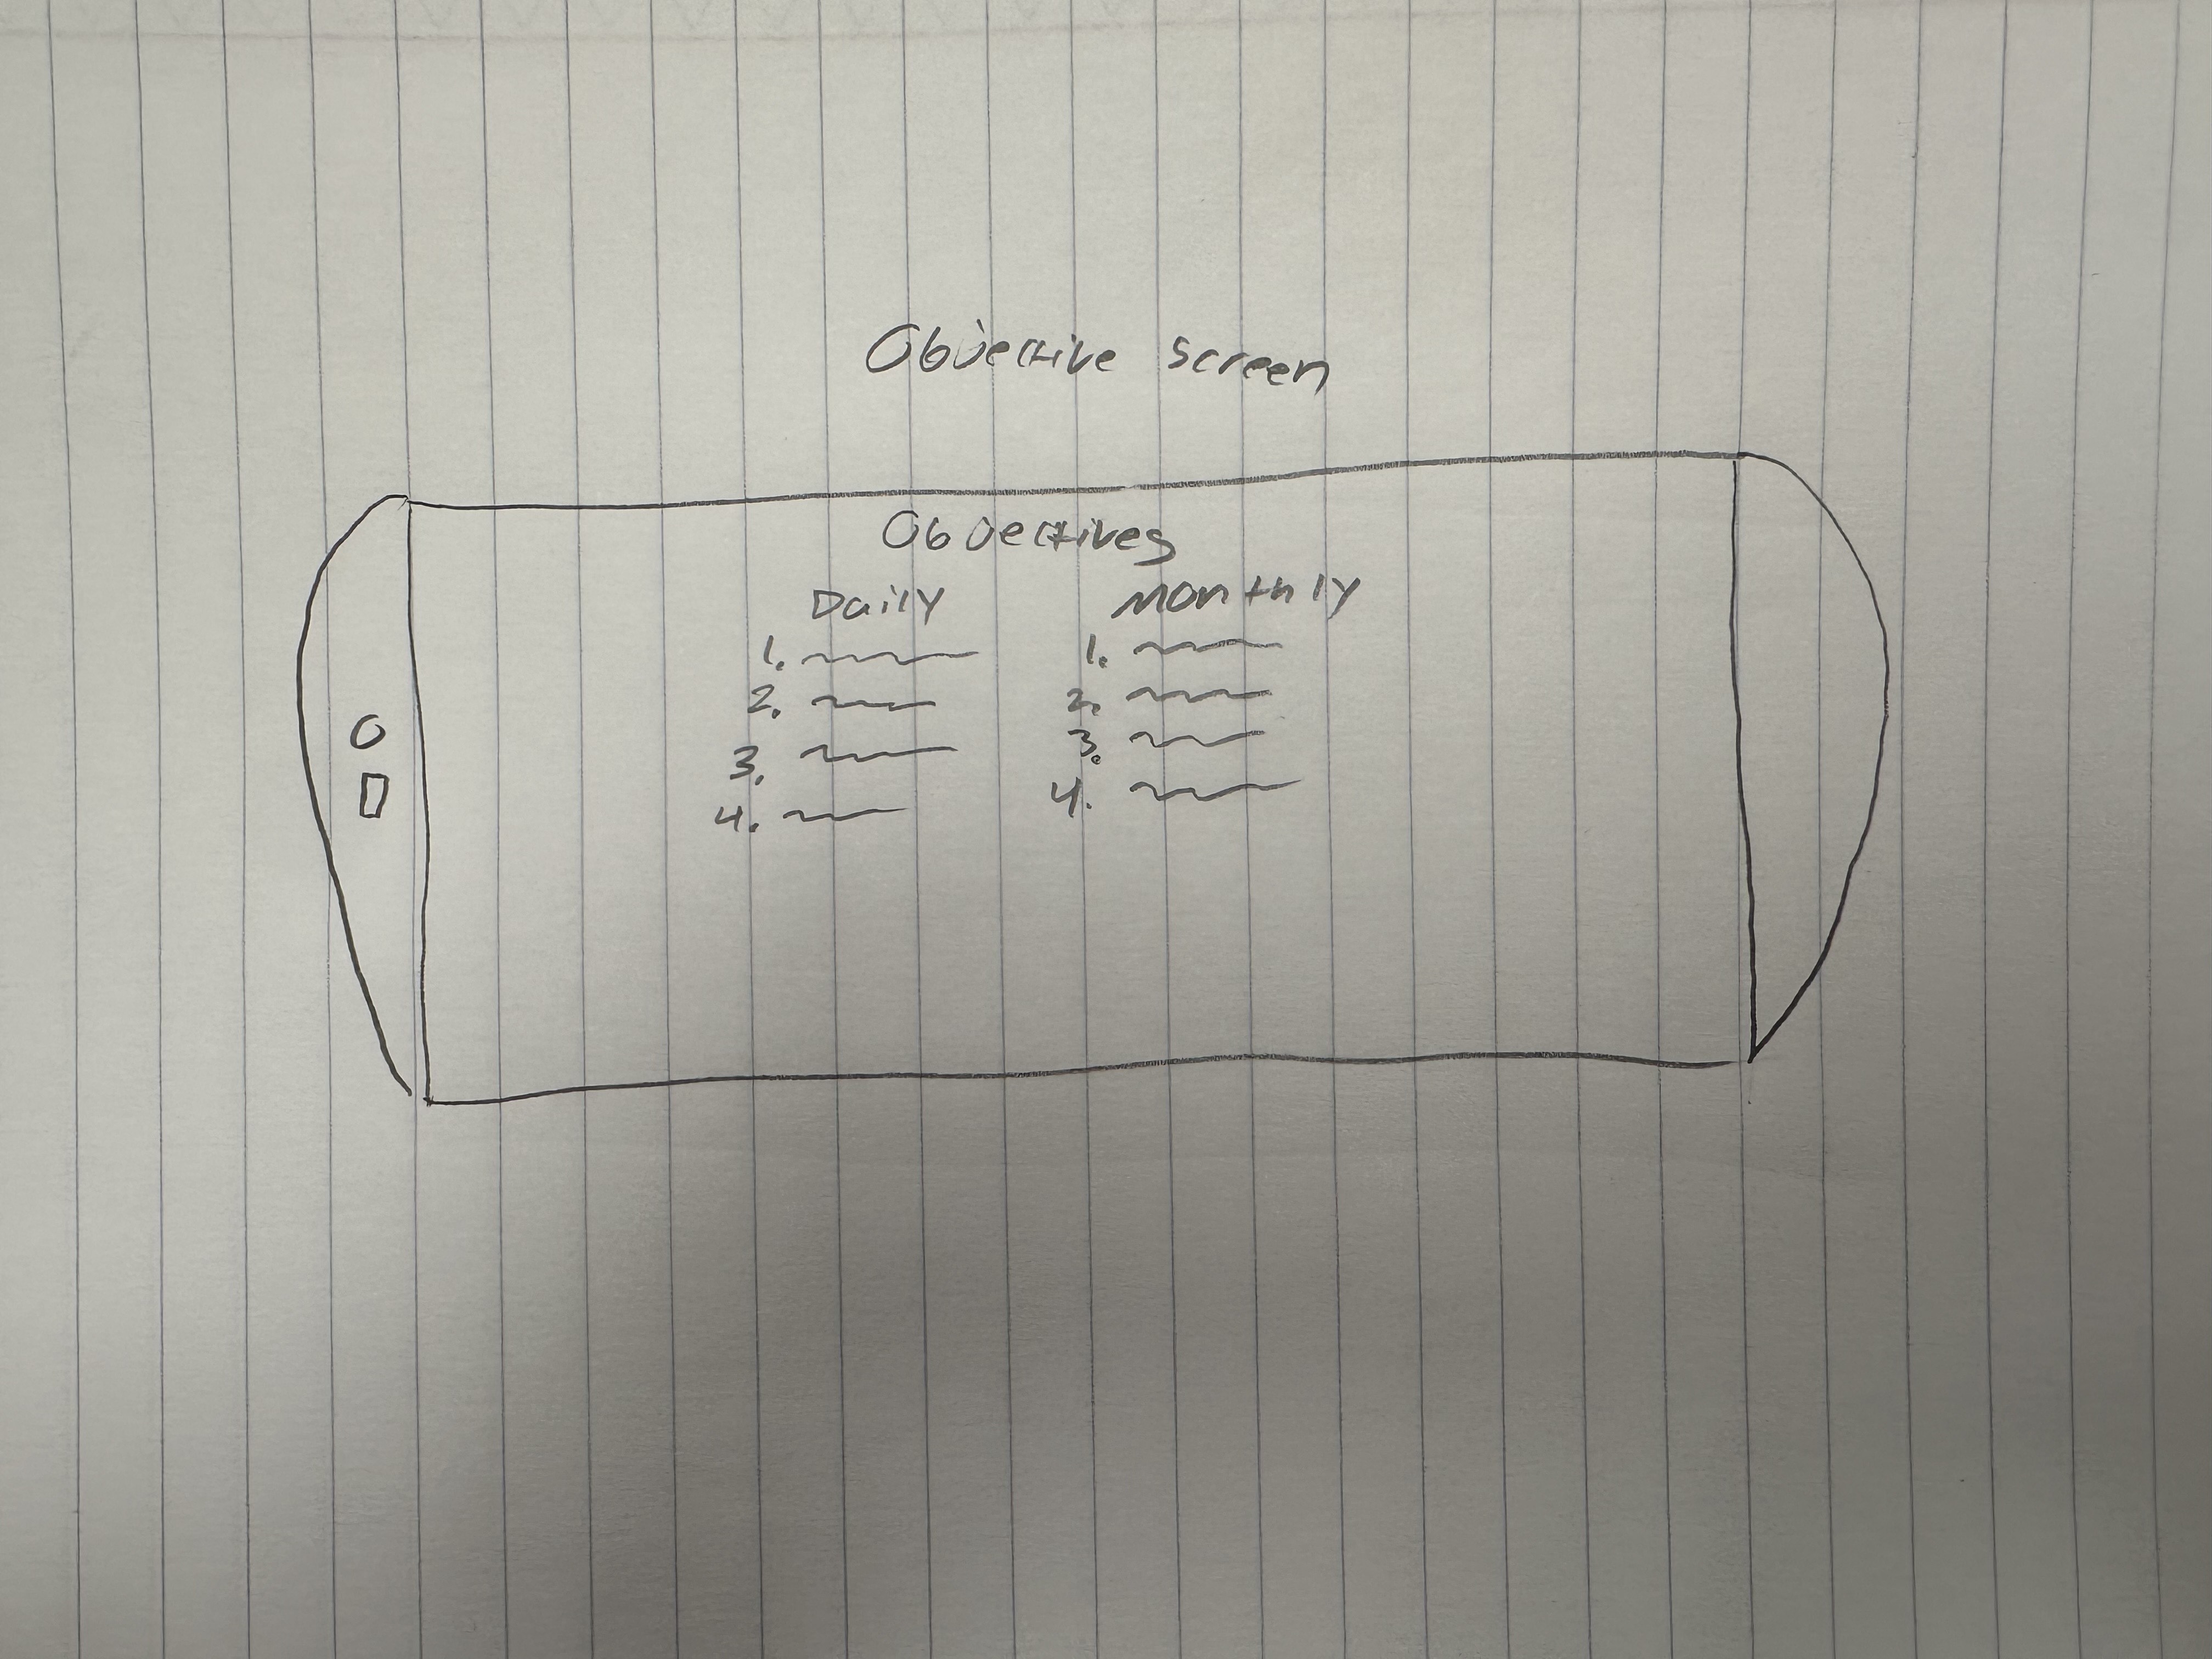 Objective screen
Objectives
Daily Monthly
1. 1.
2. 2.
3. 3.
4. 4.